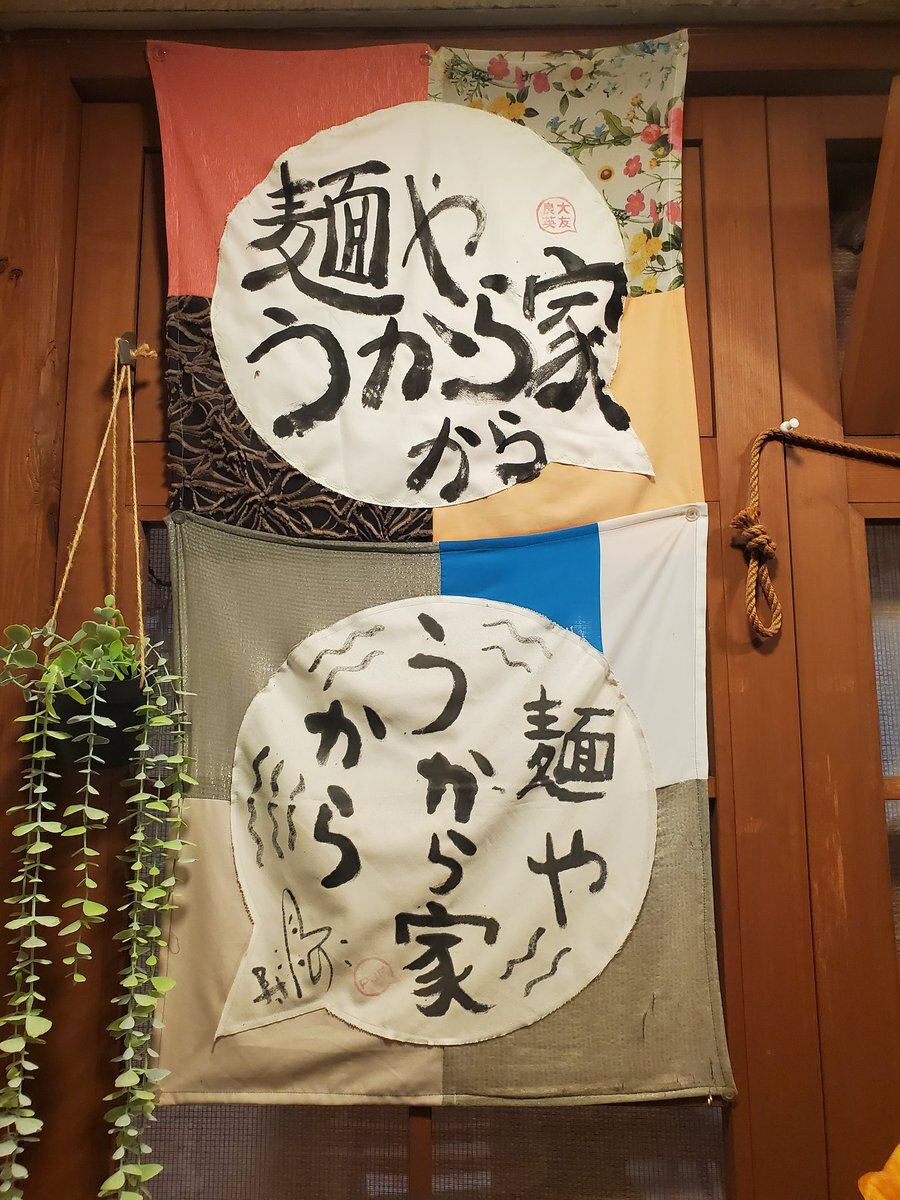 麺や
うから家
から
大友
良英
麺や
うから家
から